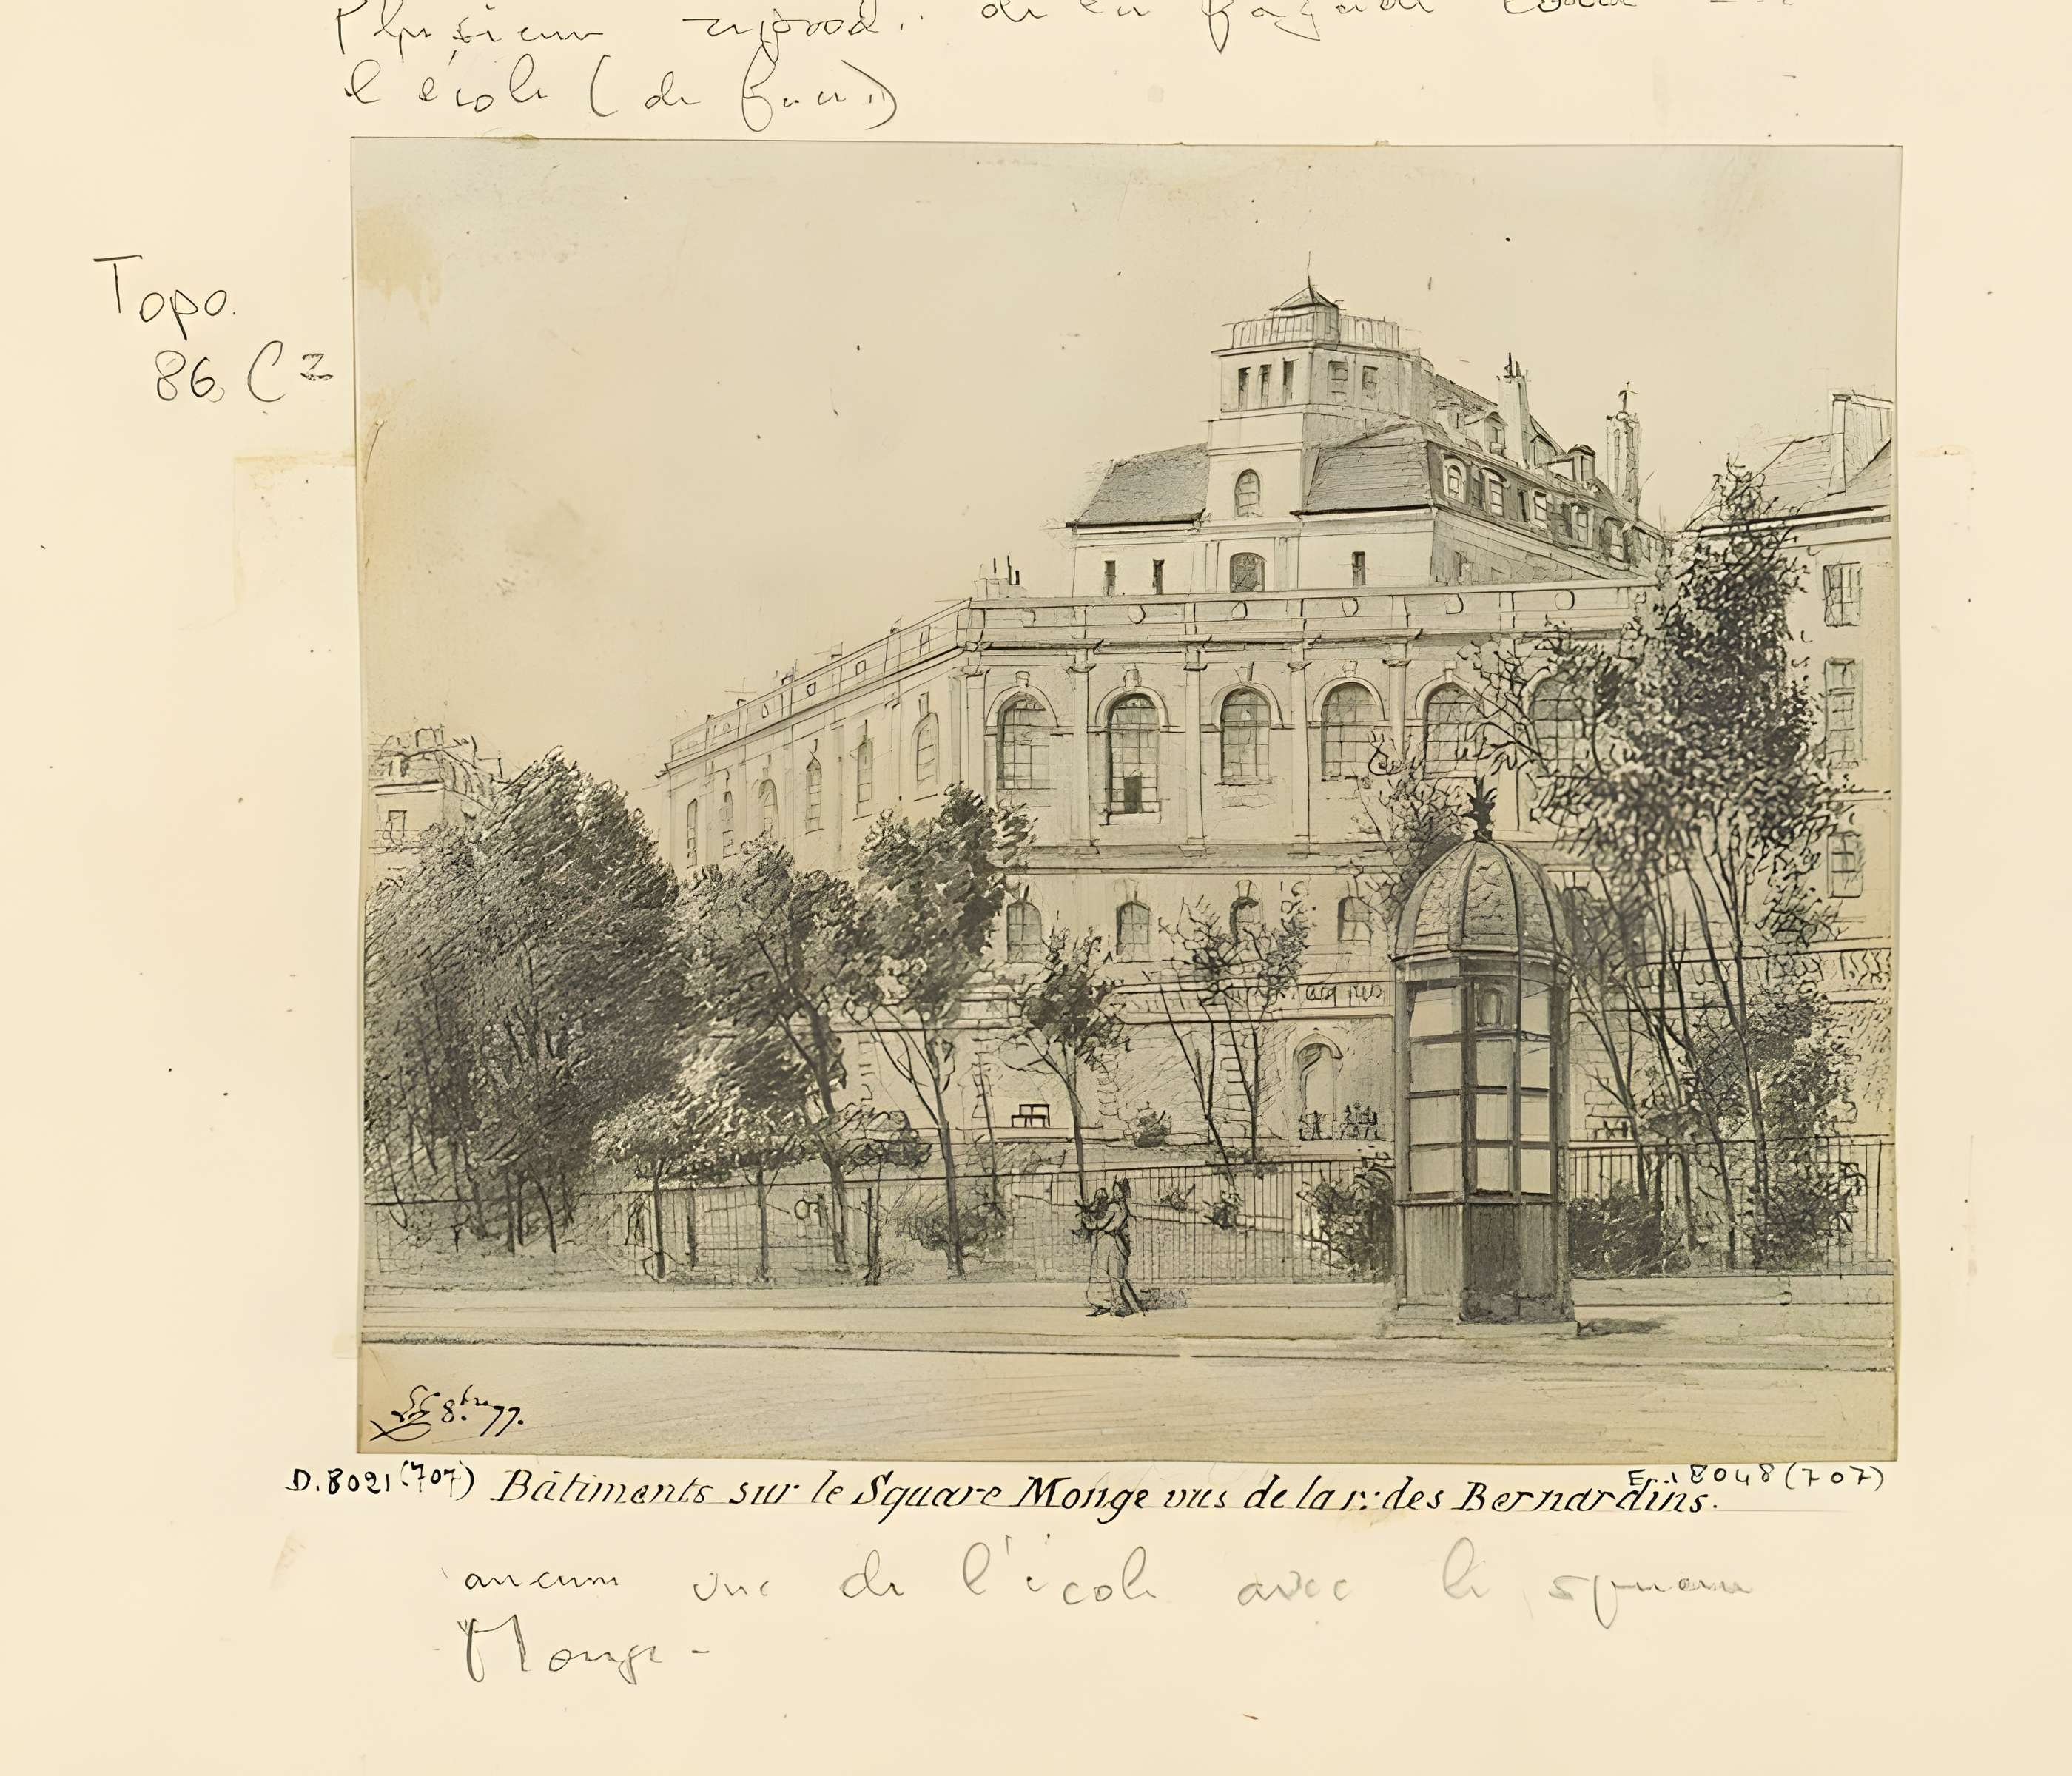 Plusieurs reprod. de la façade
l'école (de face)
Topo.
86 C
8.bre 77.
D.8021 (707) Bâtiments sur le Square Monge vus de la r. des Bernardins.
18048 (707)
aucune vue de l'école avec le square
Monge -